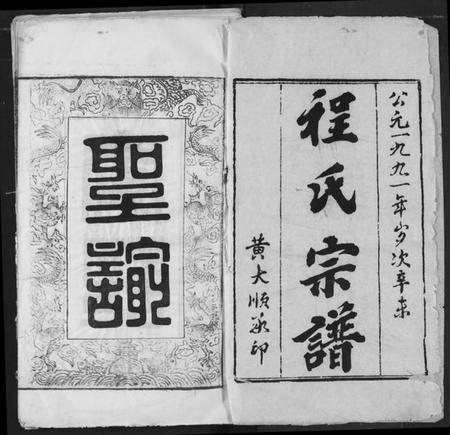 公元一九九一年岁次辛未
程氏宗譜
黄大順承印
聖諭